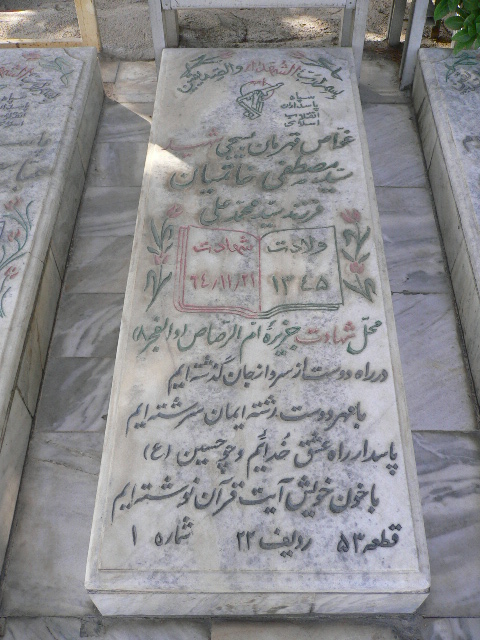 سپاه
پاسداران
انقلاب
اسلامی
غواص قهرمان بسیجی شهید
سید مصطفی خاتمیان
فرزند سید محمد علی
ولادت
۱۳۴۵
شهادت
۶۴/۱۱/۲۱
محل شهادت جزیرهٔ ام الرصاص (والفجر۸)
در راه دوست از سر و از جان گذشته‌ایم
با مهر دوست رشتهٔ ایمان سرشته‌ایم
پاسدار راه عشق خدائیم و چو حسین (ع)
با خون خویش آیت قرآن نوشته‌ایم
قطعه ۵۳ ردیف ۲۲ شماره ۱